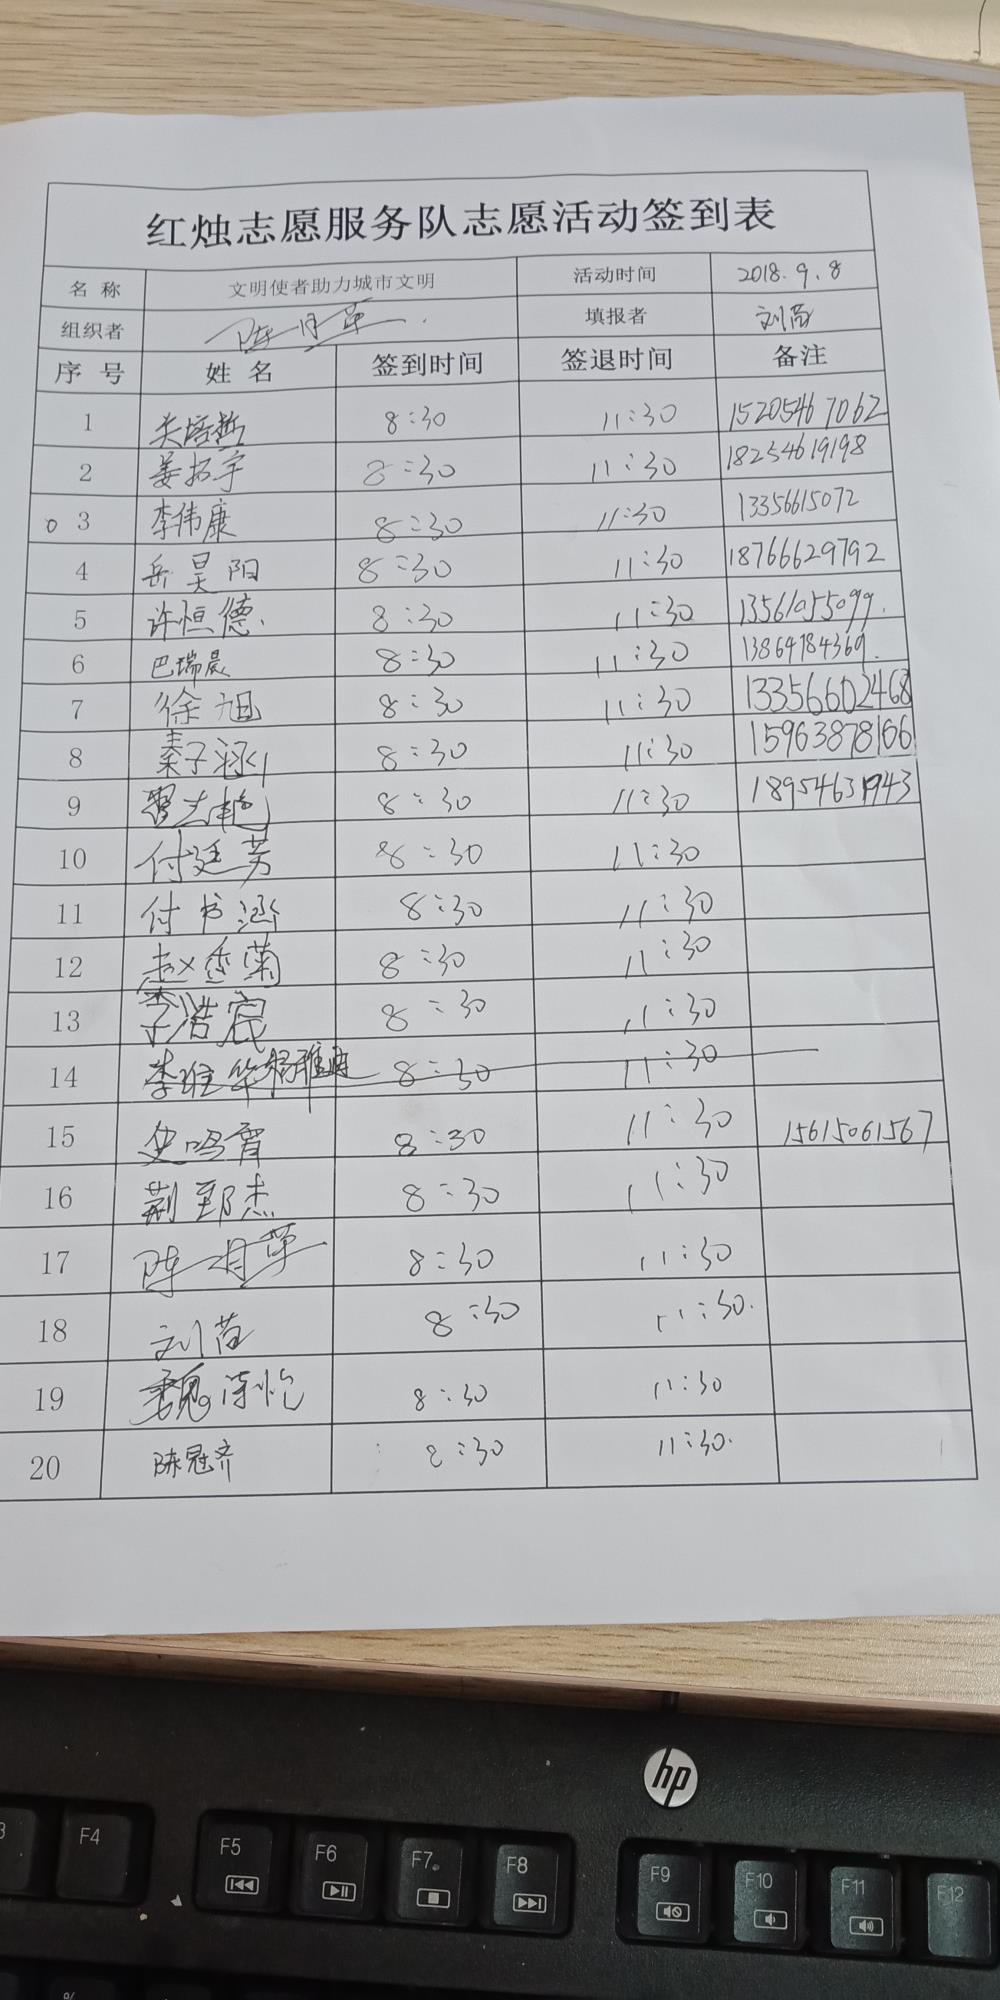 红烛志愿服务队志愿活动签到表
名 称 文明使者助力城市文明 活动时间 2018.9.8
组织者 陈月苹 填报者 刘苗
序 号 姓 名 签到时间 签退时间 备注
1 关培哲 8:30 11:30 15205467062
2 姜拓宇 8:30 11:30 18254619198
3 李伟康 8:30 11:30 13356615072
4 岳昊阳 8:30 11:30 18766629792
5 许恒德 8:30 11:30 13561055099
6 巴瑞晨 8:30 11:30 13864784369
7 徐旭 8:30 11:30 13356602468
8 秦子涵 8:30 11:30 15963878166
9 8:30 11:30 18954631943
10 付廷芳 8:30 11:30
11 付书涵 8:30 11:30
12 赵香菊 8:30 11:30
13 李浩宸 8:30 11:30
14 8:30 11:30
15 史鸣霄 8:30 11:30 15615061567
16 荆郅杰 8:30 11:30
17 陈月苹 8:30 11:30
18 刘苗 8:30 11:30
19 魏诗怡 8:30 11:30
20 陈冠齐 8:30 11:30
hp
F4 F5 F6 F7 F8 F9 F10 F11 F12